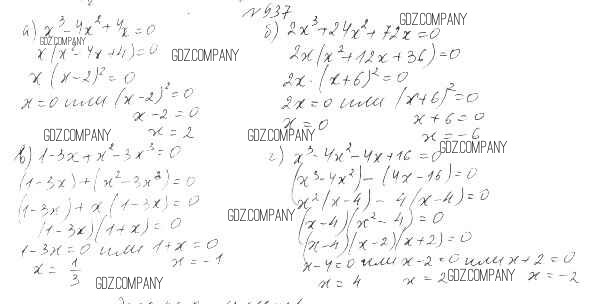 №937
а) x³-4x²+4x=0
x(x²-4x+4)=0
x(x-2)²=0
x=0 или (x-2)²=0
x-2=0
x=2
б) 2x³+24x²+72x=0
2x(x²+12x+36)=0
2x·(x+6)²=0
2x=0 или (x+6)²=0
x=0 x+6=0
x=-6
в) 1-3x+x²-3x³=0
(1-3x)+(x²-3x³)=0
(1-3x)+x(1-3x)=0
(1-3x)(1+x)=0
1-3x=0 или 1+x=0
x=1/3 x=-1
г) x³-4x²-4x+16=0
(x³-4x²)-(4x-16)=0
x²(x-4)-4(x-4)=0
(x-4)(x²-4)=0
(x-4)(x-2)(x+2)=0
x-4=0 или x-2=0 или x+2=0
x=4 x=2 x=-2
GDZ.COMPANY
GDZ.COMPANY
GDZ.COMPANY
GDZ.COMPANY
GDZ.COMPANY
GDZ.COMPANY
GDZ.COMPANY
GDZ.COMPANY
GDZ.COMPANY